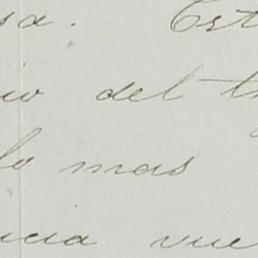 sa. Est
io del t
lo mas
una vue